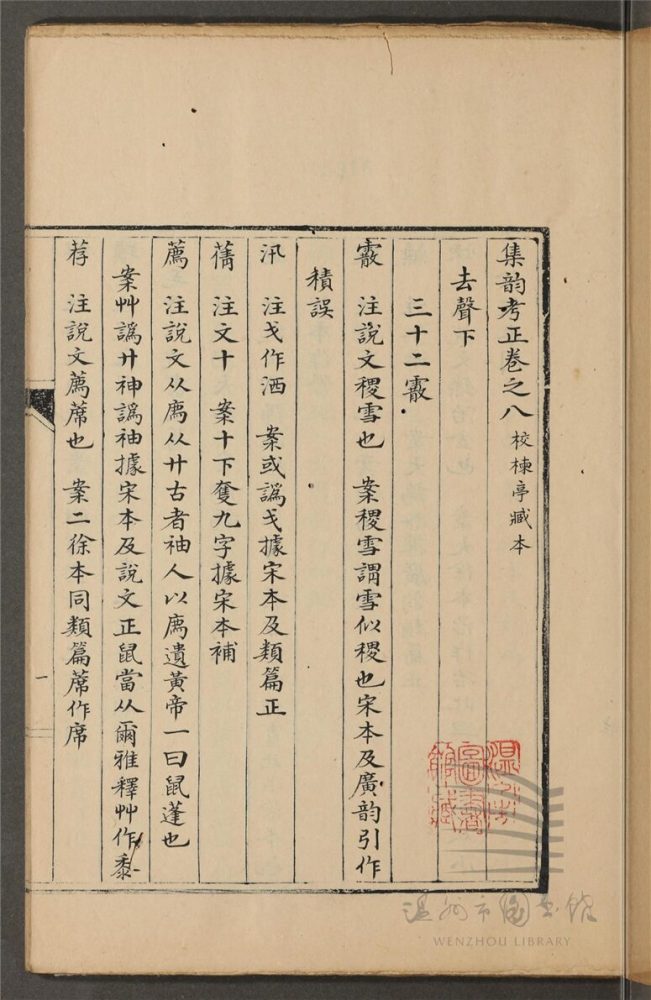 集韵考正卷之八 校楝亭臧本
去聲下
三十二霰
霰 注說文稷雪也 案稷雪謂雪似稷也宋本及廣韵引作
積誤
汛 注戈作洒 案或譌戈據宋本及類篇正
蒨 注文十 案十下奪九字據宋本補
薦 注說文从廌从廾古者袖人以廌遺黃帝一曰鼠蓬也
案艸譌廾神譌袖據宋本及說文正鼠當从爾雅釋艸作黍
荐 注說文薦蓆也 案二徐本同類篇蓆作席
一
溫州市圖書館藏
温州市图书馆
WENZHOU LIBRARY